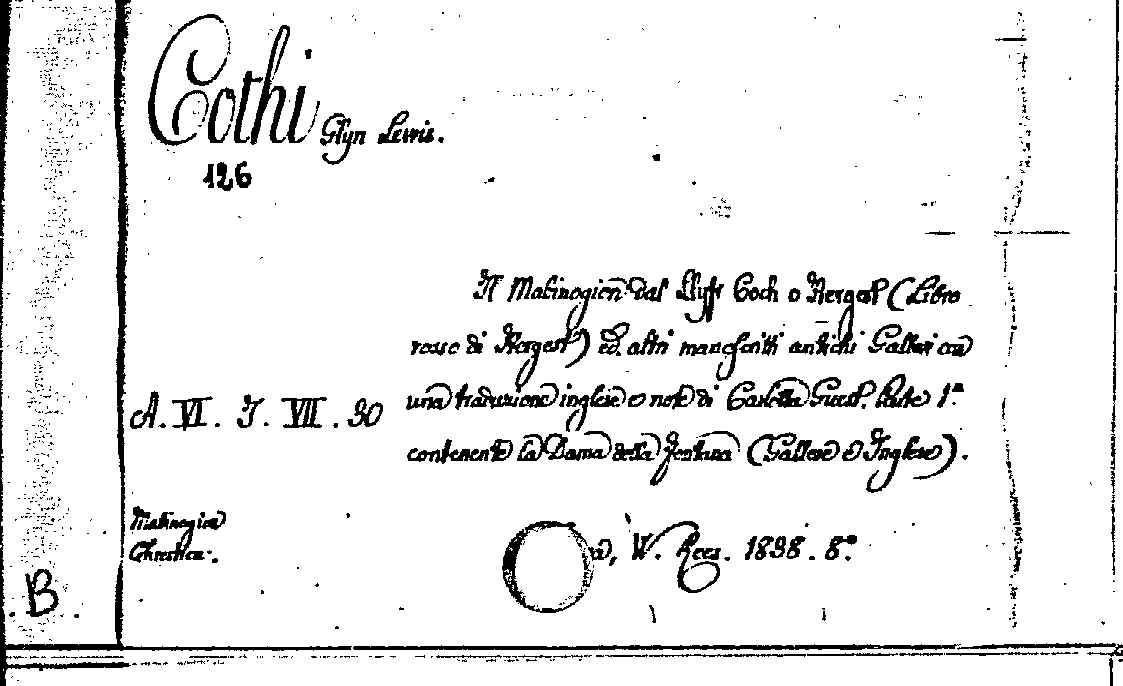 Cothi Glyn Lewis.
126
Il Mabinogion dal Llyfr Coch o Hergest (Libro
rosso di Hergest) ed altri manoscritti antichi Gallesi con
A. VI. J. VII. 30 una traduzione inglese e note di Carlotta Guest. Parte 1ª
contenente la Dama della Fontana (Gallese e Inglese).
Mabinogion
W. Rees. 1838. 8°.
B.